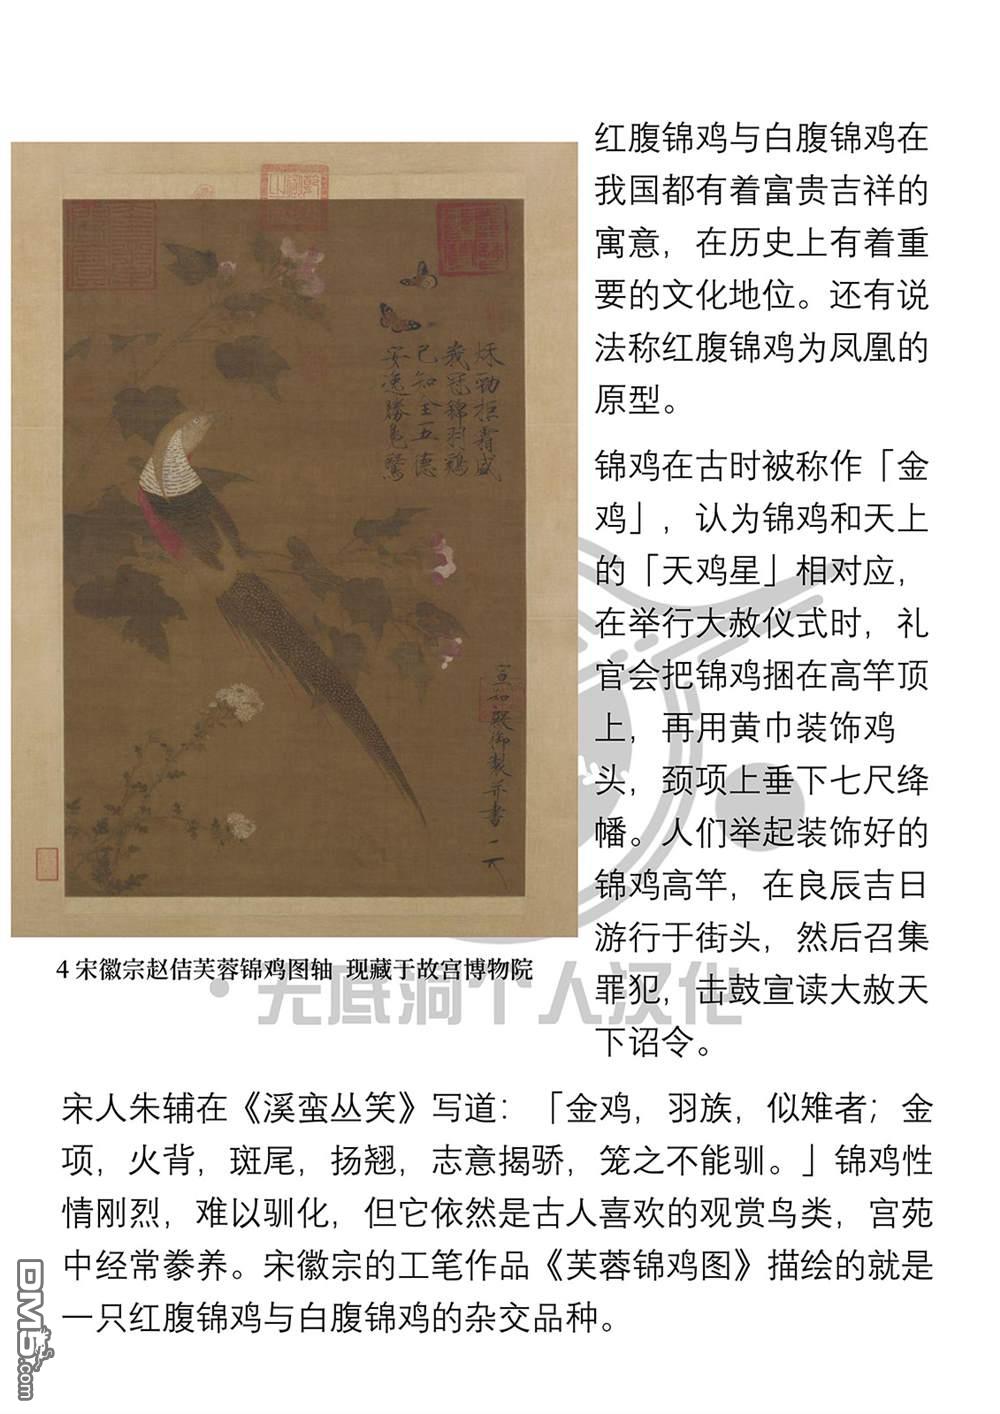 红腹锦鸡与白腹锦鸡在
我国都有着富贵吉祥的
寓意，在历史上有着重
要的文化地位。还有说
法称红腹锦鸡为凤凰的
原型。
锦鸡在古时被称作「金
鸡」，认为锦鸡和天上
的「天鸡星」相对应，
在举行大赦仪式时，礼
官会把锦鸡捆在高竿顶
上，再用黄巾装饰鸡
头，颈项上垂下七尺绛
幡。人们举起装饰好的
锦鸡高竿，在良辰吉日
游行于街头，然后召集
罪犯，击鼓宣读大赦天
下诏令。
秋勁拒霜盛
峩冠錦羽鷄
已知全五德
安逸勝鳧鷖
宣和殿御製并書
4 宋徽宗赵佶芙蓉锦鸡图轴 现藏于故宫博物院
·无底洞个人汉化
宋人朱辅在《溪蛮丛笑》写道：「金鸡，羽族，似雉者；金
项，火背，斑尾，扬翘，志意揭骄，笼之不能驯。」锦鸡性
情刚烈，难以驯化，但它依然是古人喜欢的观赏鸟类，宫苑
中经常豢养。宋徽宗的工笔作品《芙蓉锦鸡图》描绘的就是
一只红腹锦鸡与白腹锦鸡的杂交品种。
DM5.com